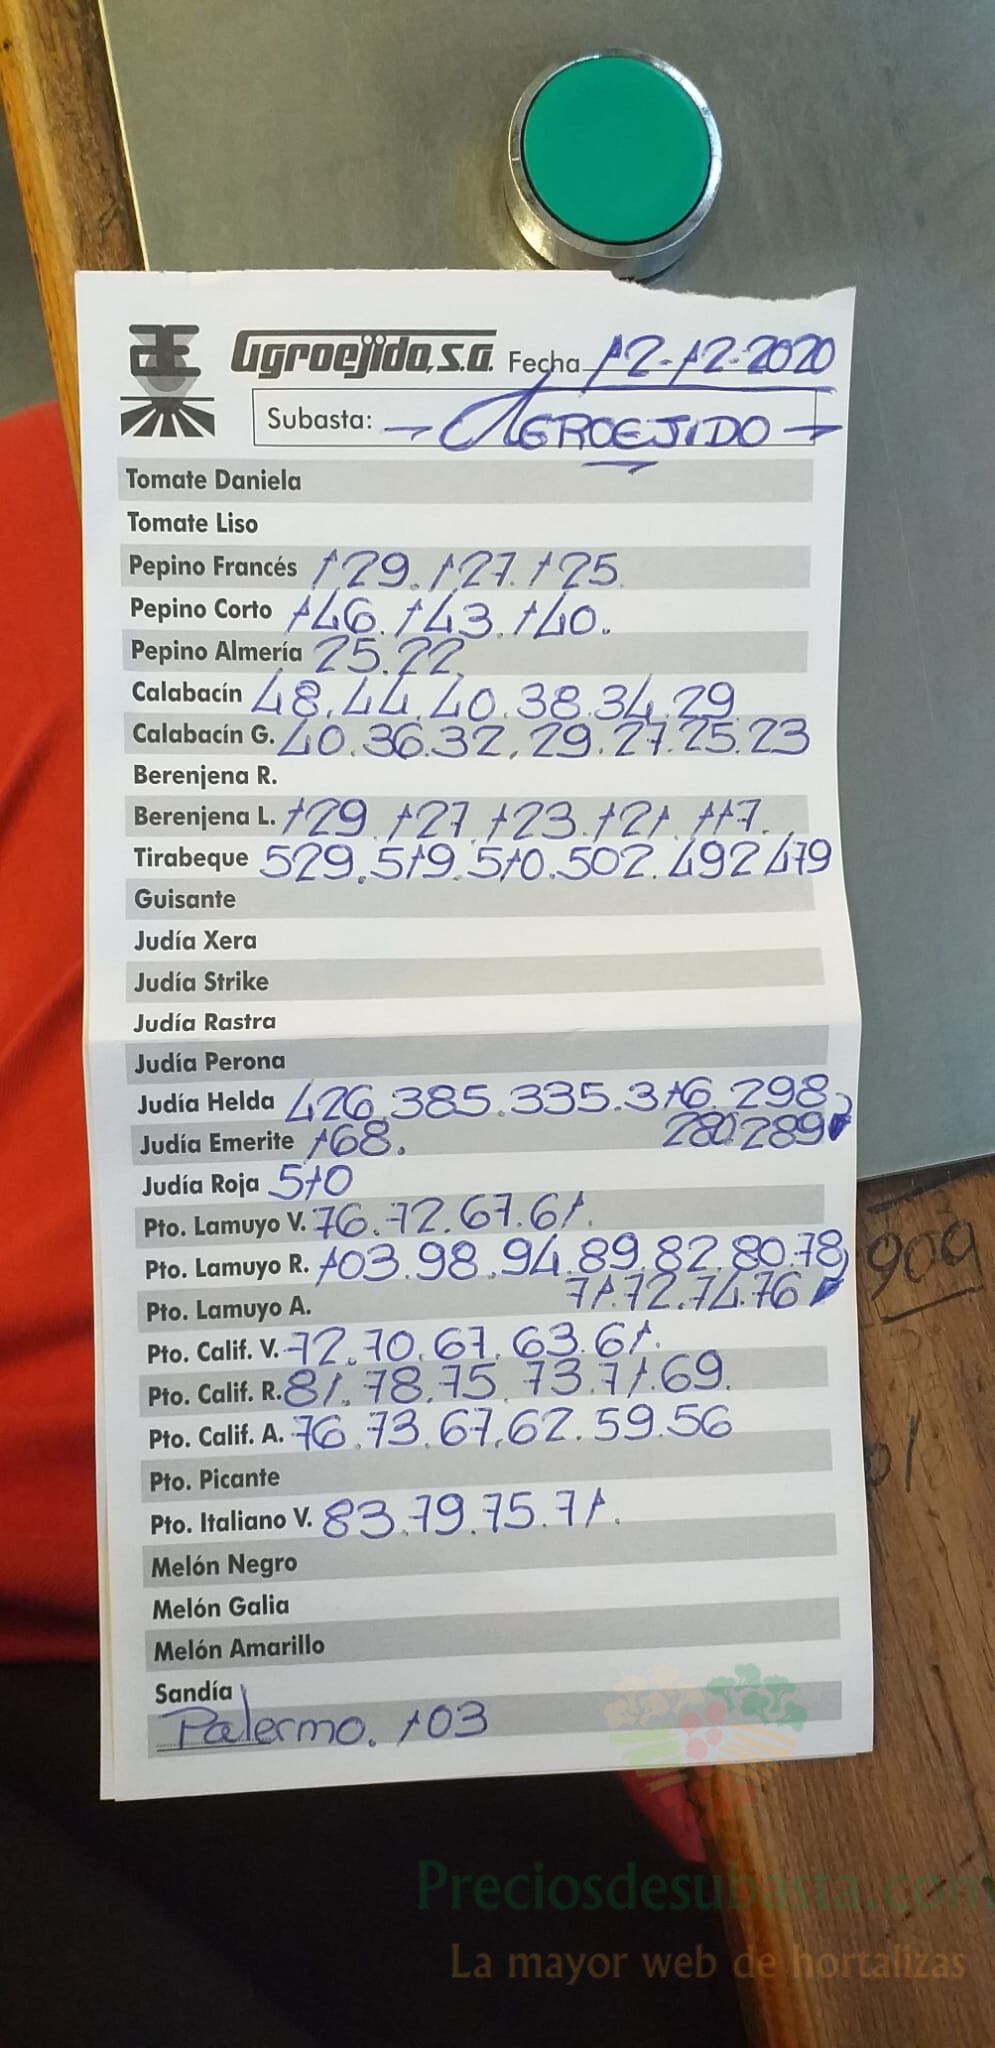 Agroejido, S.A. Fecha 12-12-2020
Subasta: → AGROEJIDO →
Tomate Daniela
Tomate Liso
Pepino Francés 129.127.125.
Pepino Corto 146.143.140.
Pepino Almería 25.22.
Calabacín 48.44.40.38.34.29
Calabacín G. 40.36.32.29.27.25.23
Berenjena R.
Berenjena L. 129.127.123.121.117.
Tirabeque 529.519.510.502.492 479
Guisante
Judía Xera
Judía Strike
Judía Rastra
Judía Perona
Judía Helda 426.385.335.316.298
280.289
Judía Emerite 168.
Judía Roja 510
Pto. Lamuyo V. 76.72.67.61.
Pto. Lamuyo R. 103.98.94.89.82.80.78
71.72.74.76
Pto. Lamuyo A.
Pto. Calif. V. 72.70.67.63.61.
Pto. Calif. R. 81.78.75.73.71.69.
Pto. Calif. A. 76.73.67.62.59.56
Pto. Picante
Pto. Italiano V. 83.79.75.71.
Melón Negro
Melón Galia
Melón Amarillo
Sandía
Palermo. 103
Preciosdesubasta.com
La mayor web de hortalizas